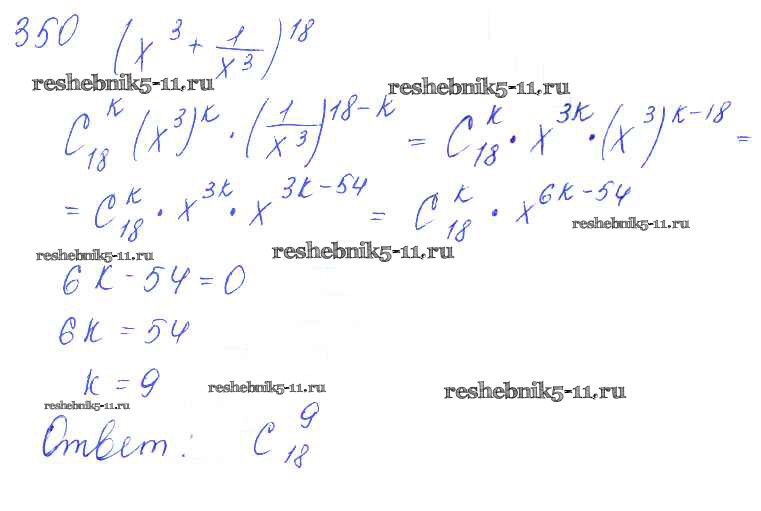 350 (x^3 + 1/x^3)^18
reshebnik5-11.ru reshebnik5-11.ru
C_18^k (x^3)^k · (1/x^3)^18-k = C_18^k · x^3k · (x^3)^k-18 =
= C_18^k · x^3k · x^3k-54 = C_18^k · x^6k-54
reshebnik5-11.ru
reshebnik5-11.ru reshebnik5-11.ru
6k - 54 = 0
6k = 54
k = 9
reshebnik5-11.ru reshebnik5-11.ru
reshebnik5-11.ru
Ответ: C_18^9